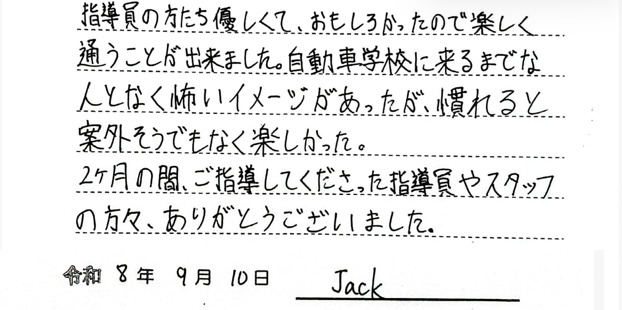 指導員の方たち優しくて、おもしろかったので楽しく
通うことが出来ました。自動車学校に来るまでな
人となく怖いイメージがあったが、慣れると
案外そうでもなく楽しかった。
2ヶ月の間、ご指導してくださった指導員やスタッフ
の方々、ありがとうございました。
令和 8年 9月 10日 Jack